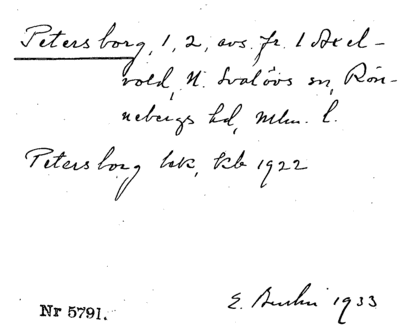 Petersborg, 1, 2, avs. fr. 1 Axel-
vold, N. Svalövs sn, Rön-
nebergs hd, Mlm. l.
Petersborg bsk, kb 1922
E. 1933
Nr 5791.